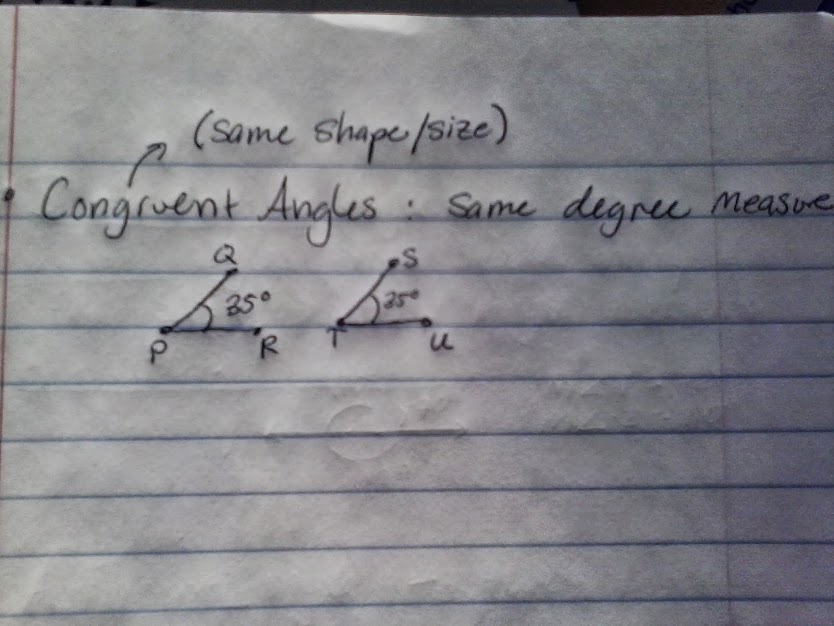 (same shape/size)
• Congruent Angles : same degree measure
Q
S
35°
35°
P
R
T
U